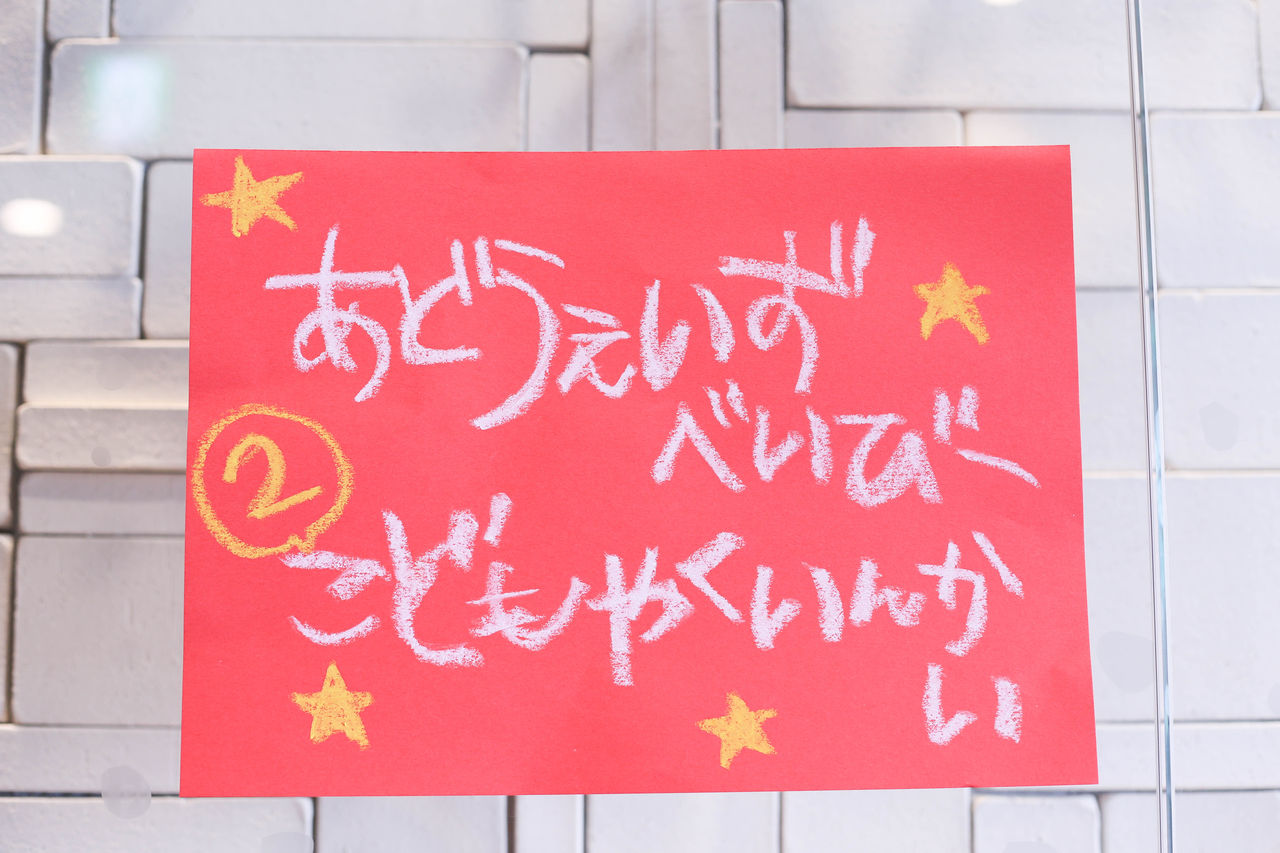 あどうぇいず
べいびー
②こどもやくいんか
い